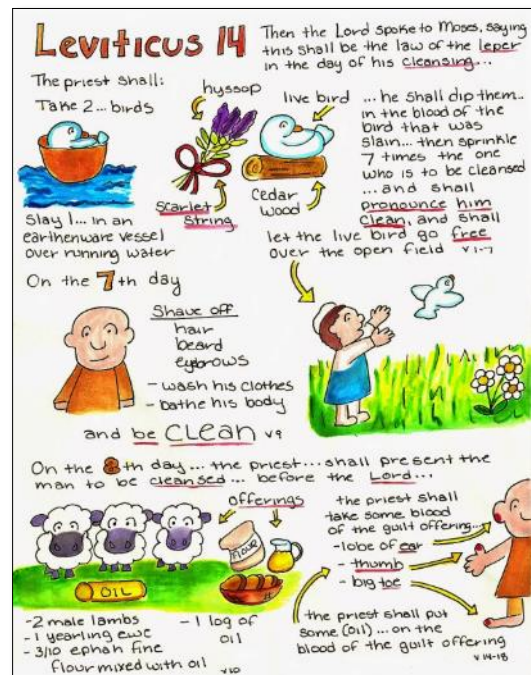 Leviticus 14
Then the Lord spoke to Moses, saying
this shall be the law of the leper
in the day of his cleansing...
The priest shall:
Take 2... birds
hyssop
live bird
Scarlet
String
Cedar
Wood
... he shall dip them..
in the blood of the
bird that was
slain... then sprinkle
7 times the one
who is to be cleansed
... and shall
pronounce him
clean, and shall
let the live bird go free
over the open field v1-7
Slay 1... in an
earthenware vessel
over running water
On the 7th day
Shave off
hair
beard
eyebrows
- wash his clothes
- bathe his body
and be CLEAN v9
On the 8th day... the priest... shall present the
man to be cleansed... before the Lord...
offerings
FLOUR
OIL
-2 male lambs
-1 yearling ewe
-3/10 ephah fine
flour mixed with oil
-1 log of
oil
v10
the priest shall
take some blood
of the guilt offering...
-lobe of ear
-thumb
-big toe
the priest shall put
some (oil)... on the
blood of the guilt offering
v14-18